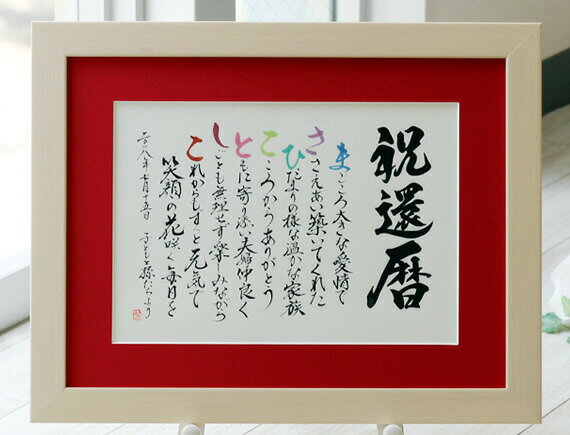 祝還暦
まごころ大きな愛情で
ささえあい築いてくれた
ひだまりの様な温かな家族
こころからありがとう
ともに寄り添い夫婦仲良く
しごとも無理せず楽しみながら
これからもずっと元気で
笑顔の花咲く毎日を
二〇一八年七月十五日 子どもと孫たちより